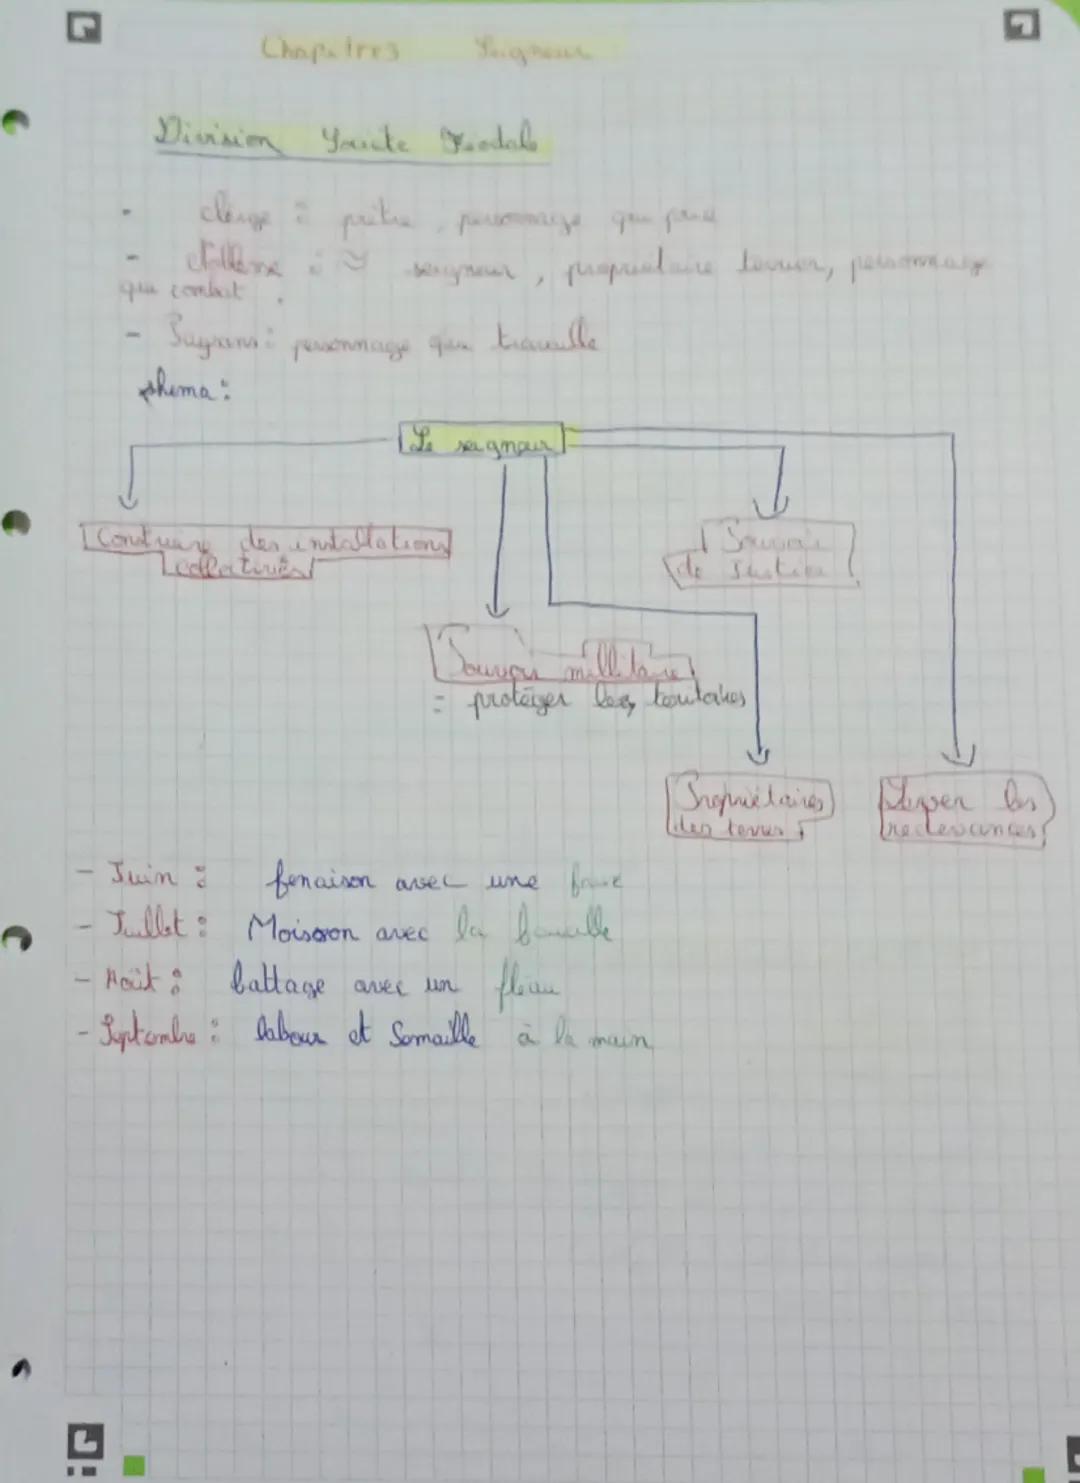 Chapitres Seigneur
Division Féodale
- clergé : prêtre, personnage qui prie
- : seigneur, propriétaire terrien, personnage
qui combat.
- Paysans : personnage qui travaille
shema :
Le seigneur
Construire des installations
collectives
Pouvoir
de Justice
Pouvoir millitaire
= protéger les
Propriétaires
des terres
Lever les
redevances
- Juin : fenaison avec une faux
- Juillet : Moisson avec la
- Août : battage avec un fléau
- Septembre : labour et Semaille à la main